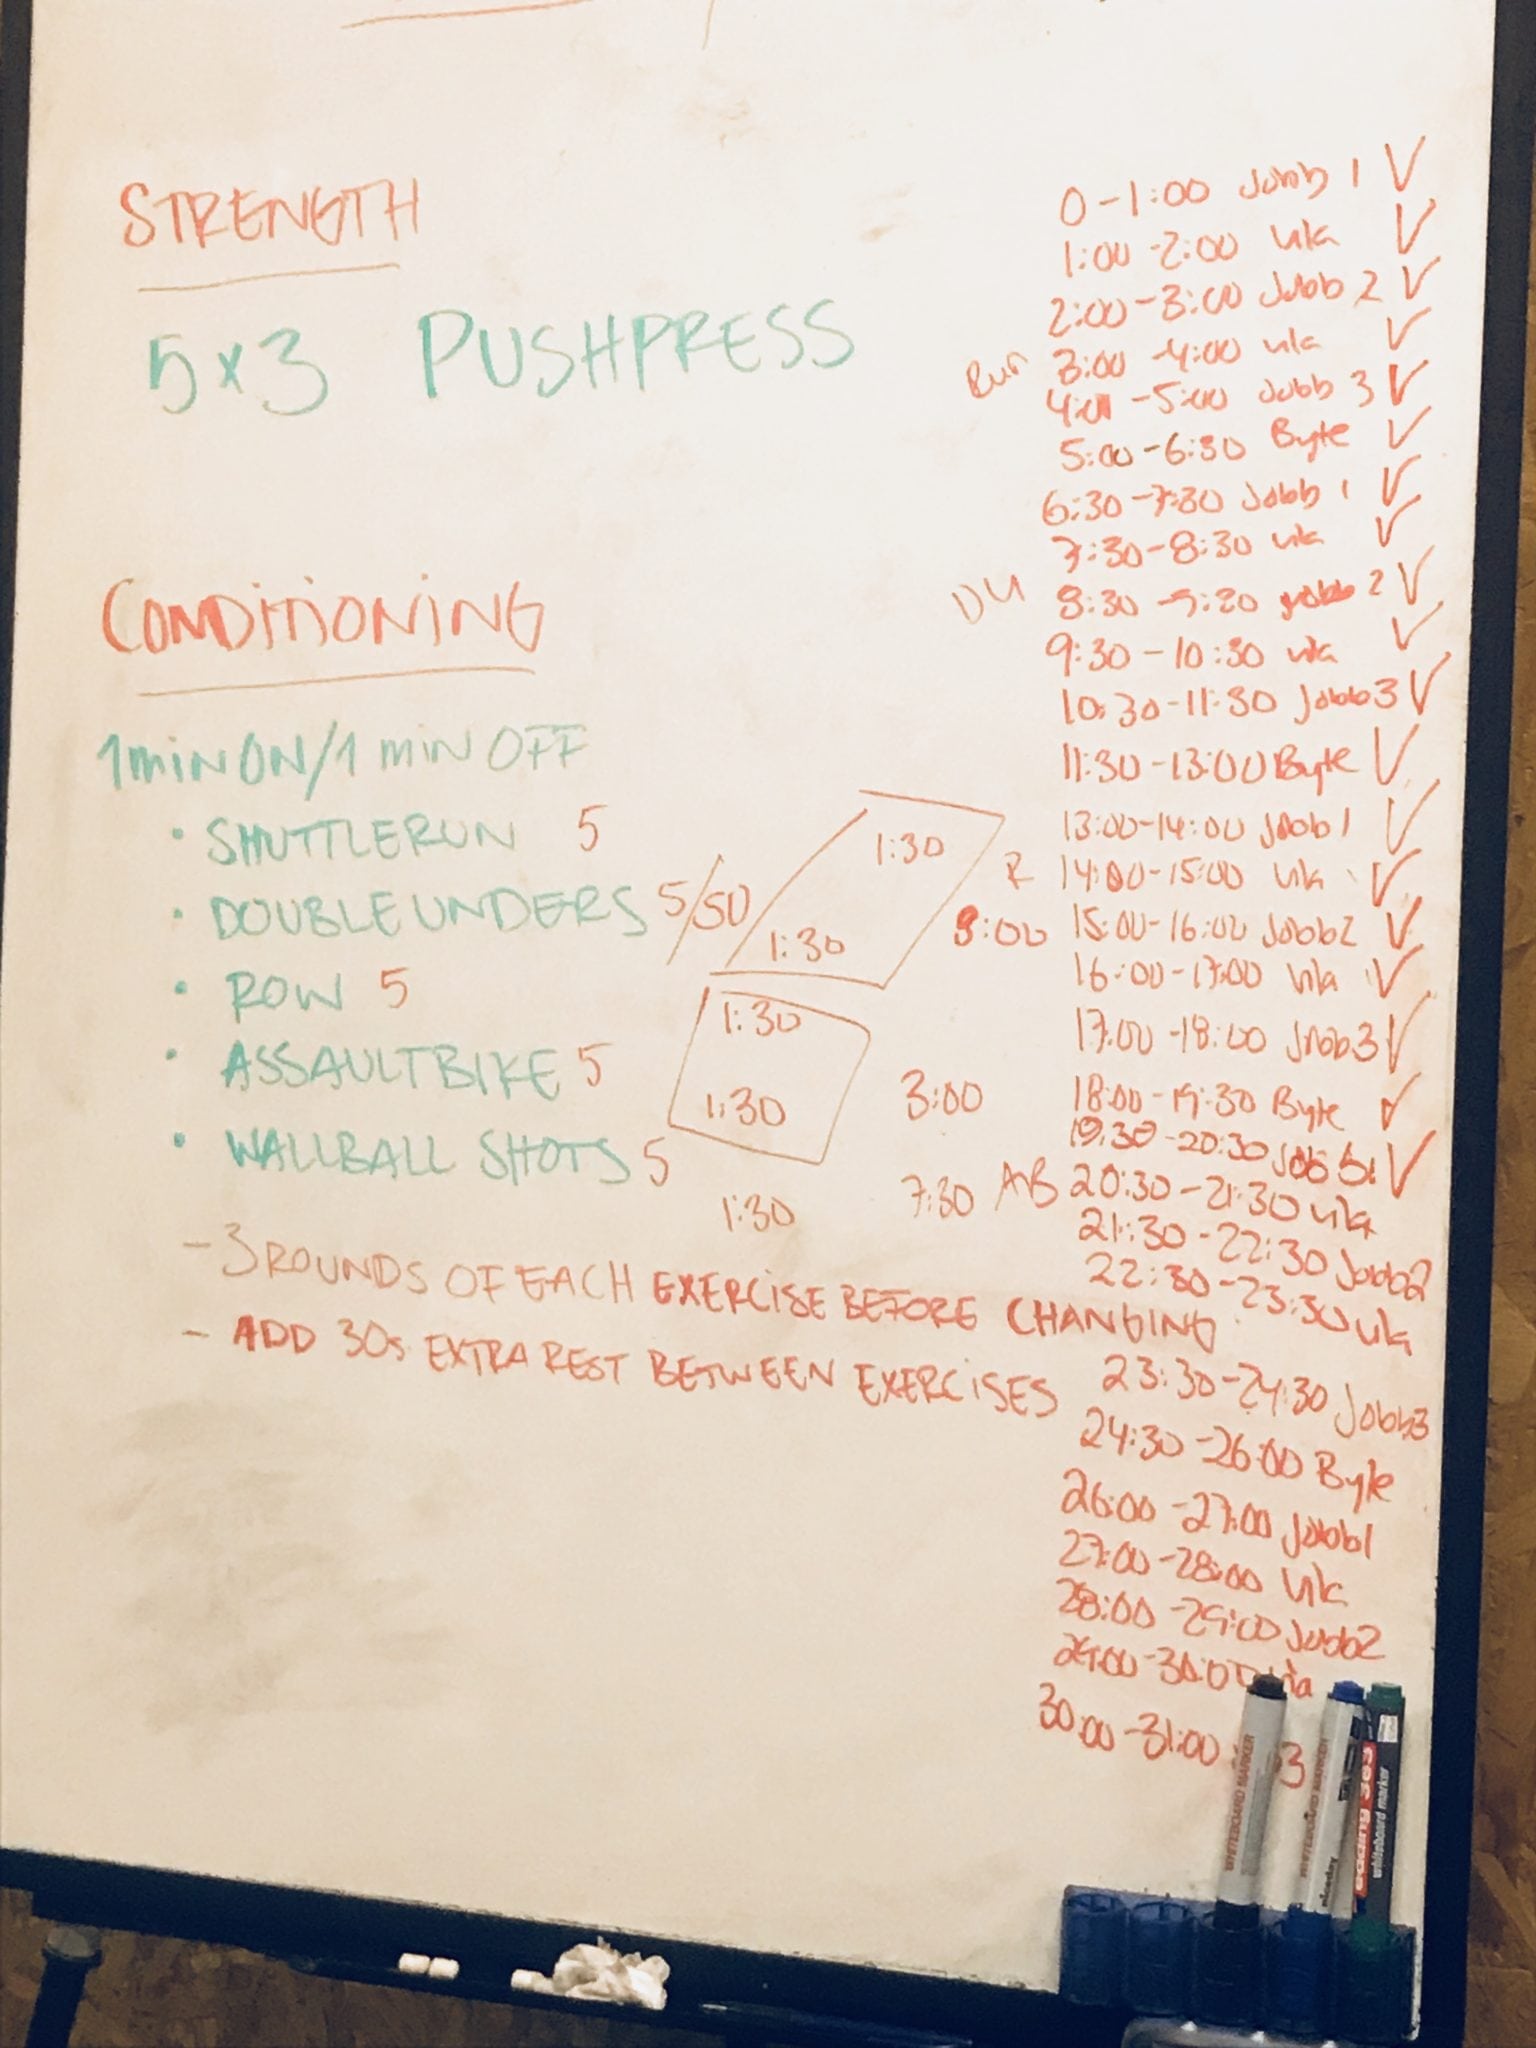 STRENGTH
5×3 PUSHPRESS
CONDITIONING
1 min ON/1 min OFF
• SHUTTLERUN 5
• DOUBLE UNDERS 5/50
• ROW 5
• ASSAULTBIKE 5
• WALLBALL SHOTS 5
- 3 ROUNDS OF EACH EXERCISE BEFORE CHANGING
- ADD 30s EXTRA REST BETWEEN EXERCISES
1:30
1:30
1:30
1:30
1:30
8:00
3:00
7:30
0-1:00 Jobb 1 ✓
1:00-2:00 vila ✓
2:00-3:00 Jobb 2 ✓
Run 3:00-4:00 vila ✓
4:00-5:00 Jobb 3 ✓
5:00-6:30 Byte ✓
6:30-7:30 Jobb 1 ✓
7:30-8:30 vila ✓
DU 8:30-9:30 Jobb 2 ✓
9:30-10:30 vila ✓
10:30-11:30 Jobb3 ✓
11:30-13:00 Byte ✓
13:00-14:00 Jobb1 ✓
R 14:00-15:00 vila ✓
15:00-16:00 Jobb2 ✓
16:00-17:00 vila ✓
17:00-18:00 Jobb3 ✓
18:00-19:30 Byte ✓
19:30-20:30 Jobb1 ✓
AB 20:30-21:30 vila
21:30-22:30 Jobb2
22:30-23:30 vila
23:30-24:30 Jobb3
24:30-26:00 Byte
26:00-27:00 Jobb1
27:00-28:00 Vila
28:00-29:00 Jobb2
29:00-30:00
30:00-31:00 3
WHITEBOARD MARKER
WHITEBOARD MARKER
edding 363
whiteboard marker